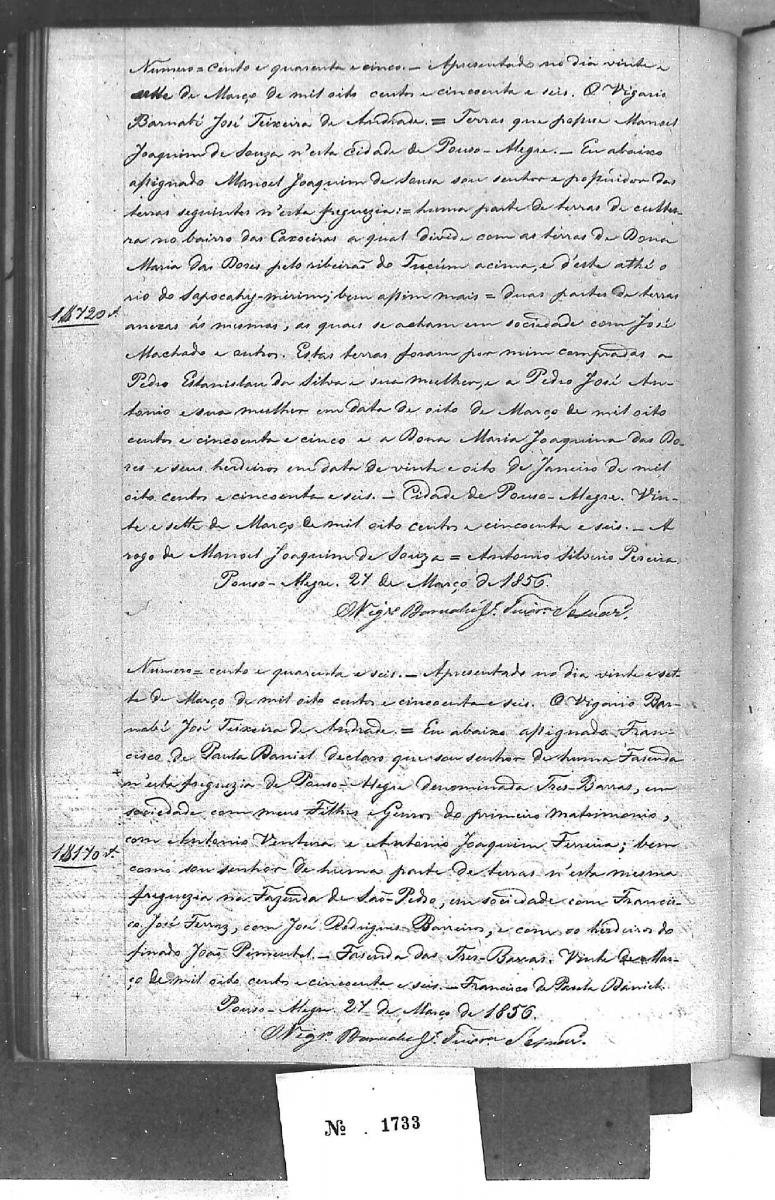 Numero = cento e quarenta e cinco. — Apresentado no dia vinte e
sette de Março de mil oito centos e cincoenta e seis. O Vigario
Barnabé José Teixeira de Andrade. = Terras que possue Manoel
Joaquim de Souza n'esta Cidade de Pouso-Alegre. — Eu abaixo
assignado Manoel Joaquim de Sousa sou senhor e possuidor das
terras seguintes n'esta freguezia: = huma parte de terras de cultu-
ra no bairro das Caxoeiras a qual divide com as terras de Dona
Maria das Dores pelo ribeirão do Tucúm acima, e d'este athé o
rio do Sapocahy-mirim; bem assim mais = duas partes de terras
anexas ás mesmas, as quais se acham em sociedade com José
Machado e outros. Estas terras foram por mim compradas a
Pedro Estanislau da Silva e sua mulher, e a Pedro José An-
tonio e sua mulher em data de oito de Março de mil oito
centos e cincoenta e cinco e a Dona Maria Joaquina das Do-
res e seus herdeiros em data de vinte e oito de Janeiro de mil
oito centos e cincoenta e seis. — Cidade de Pouso-Alegre. Vin-
te e sette de Março de mil oito centos e cincoenta e seis. — A
rogo de Manoel Joaquim de Souza = Antonio Silverio Pereira.
Pouso-Alegre. 27 de Março de 1856.
O Vigr.º Barnabé J.
Numero = cento e quarenta e seis. — Apresentado no dia vinte e set-
te de Março de mil oito centos e cincoenta e seis. O Vigario Bar-
nabé José Teixeira de Andrade. = Eu abaixo assignado Fran-
cisco de Paula Daniel declaro que sou senhor de huma Fazenda
n'esta freguezia de Pouso-Alegre denominada Tres-Barras, em
sociedade com meus Filhos e Genros do primeiro matrimonio,
com Antonio Ventura e Antonio Joaquim Ferreira; bem
como sou senhor de huma parte de terras n'esta mesma
freguezia na Fazenda de São-Pedro, em sociedade com Francis-
co José Ferraz, com José Rodrigues Barreiro, e com os herdeiros do
finado João Pimentel. — Fazenda das Tres-Barras. Vinte de Mar-
ço de mil oito centos e cincoenta e seis. — Francisco de Paula Daniel.
Pouso-Alegre. 27 de Março de 1856.
O Vigr.º Barnabé J.
Nº 1733